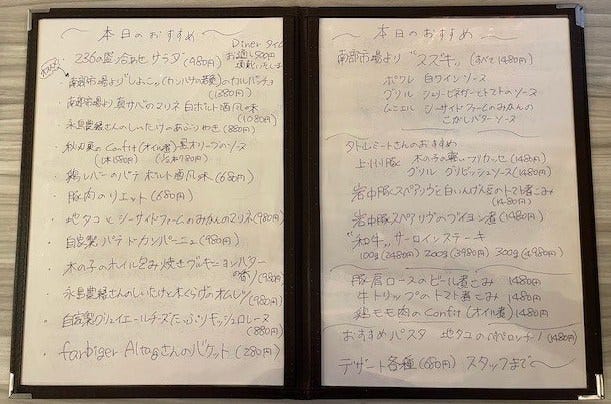 ~ 本日のおすすめ ~
Diner タイム
お通し500円
頂戴いたします
・236の盛合わせ サラダ (980円)
・南部市場より"しょっこ"(カンパチの若魚)のカルパッチョ
(1380円)
・南部市場より 真サバのマリネ 白ポルト酒風味
(1080円)
・永島農縁さんのしいたけのあぶりやき (880円)
・秋刀魚の Confit (オイル煮) 黒オリーブのソース
(1本1580円) (1/2本980円)
・鶏レバーのパテ ポルト酒風味 (680円)
・豚肉のリエット (680円)
・地タコとシーサイドファームのみかんのマリネ (980円)
・自家製パテドカンパーニュ (980円)
・木の子のホイル包み焼き ブルギニョンバター
の香り (980円)
・永島農縁さんのしいたけと木くらげのオムレツ
(980円)
・自家製グリュイエールチーズたっぷりキッシュロレーヌ
(880円)
・farbiger Altagさんのバケット (280円)
~ 本日のおすすめ ~
南部市場より "スズキ" (すべて1480円)
ポワレ 白ワインソース
グリル シェリービネガーとトマトのソース
ムニエル シーサイドファームのみかんの
こがしバターソース
タトルミートさんのおすすめ
上州豚 木の子の軽いフリカッセ (1480円)
グリル グリビッシュソース (1480円)
岩中豚スペアリヴと白いんげん豆のトマト煮こみ
(1480円)
岩中豚スペアリヴのブイヨン煮 (1480円)
"和牛" サーロインステーキ
100g (2480円) 200g (3980円) 300g (4980円)
豚肩ロースのビール煮こみ 1480円
牛トリップのトマト煮こみ 1480円
鶏モモ肉のConfit (オイル煮) 1480円
おすすめパスタ 地タコのペペロンチーノ (1480円)
デザート各種 (680円) スタッフまで~